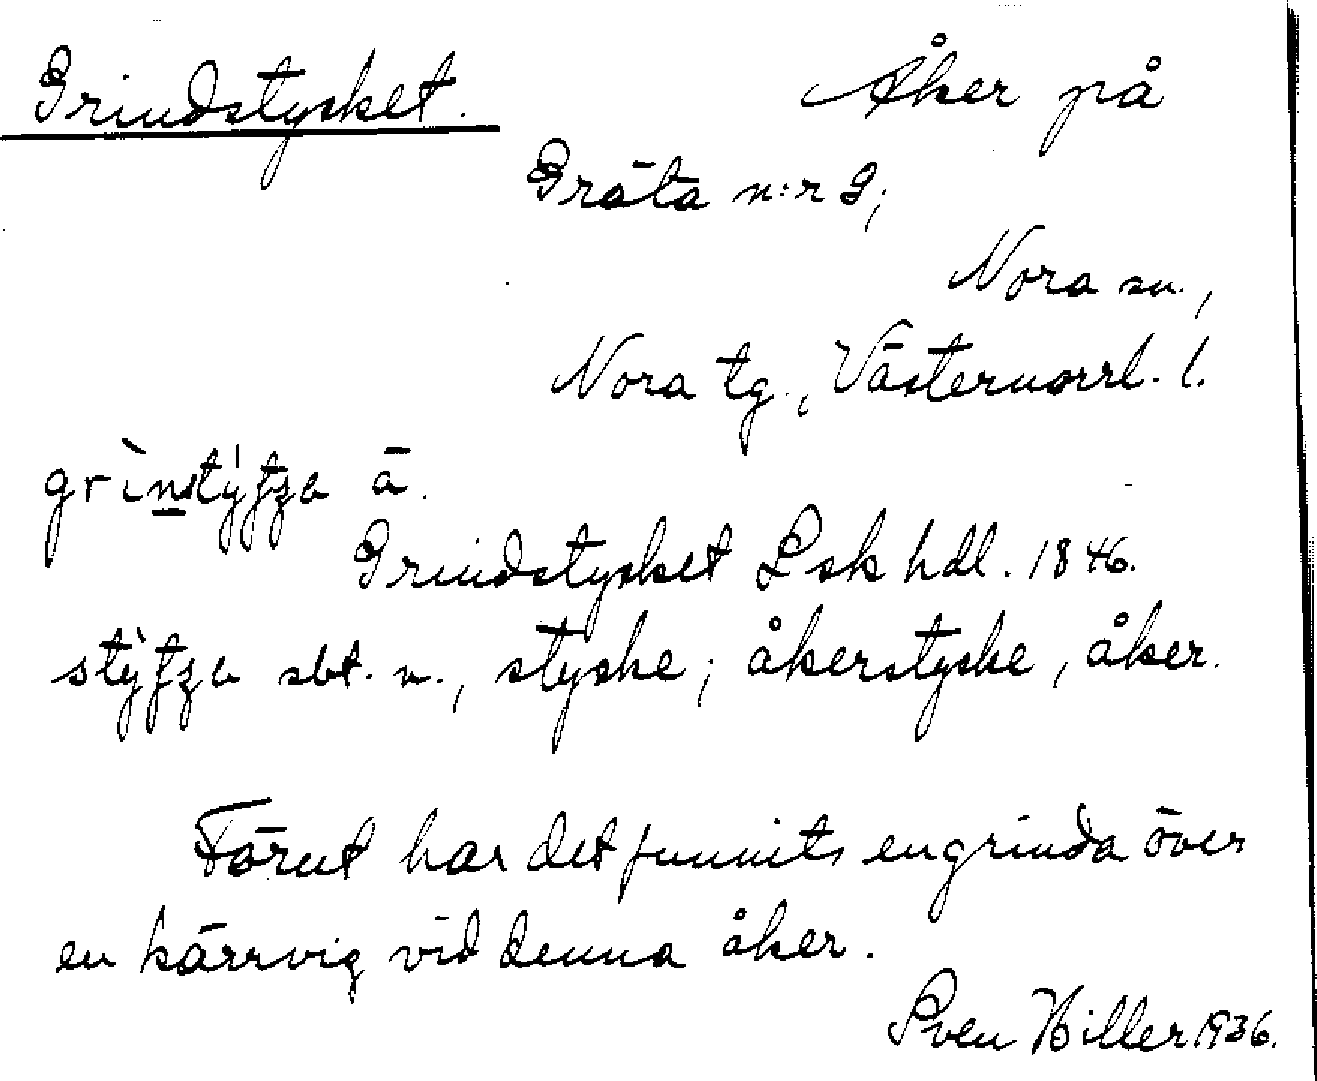 Grindstycket. Åker på
Gräta n:r 2;
Nora sn.,
Nora tg., Västernorrl. l.
Grindstycket Lsk hdl. 1846.
sbt. n., stycke; åkerstycke, åker.
Förut har det funnits en grinda över
en kärrvig vid denna åker.
Sven Hiller 1936.